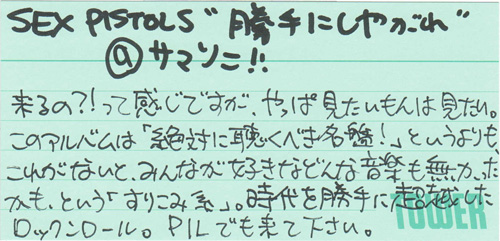 SEX PISTOLS "勝手にしやがれ"
@サマソニ!!
来るの?!って感じですが、やっぱ見たいもんは見たい。
このアルバムは「絶対に聴くべき名盤!」というよりも、
これがないと、みんなが好きなどんな音楽も無かった
かも、という「すりこみ系」。時代を勝手に超越した
ロックンロール。PILでも来て下さい。
TOWER